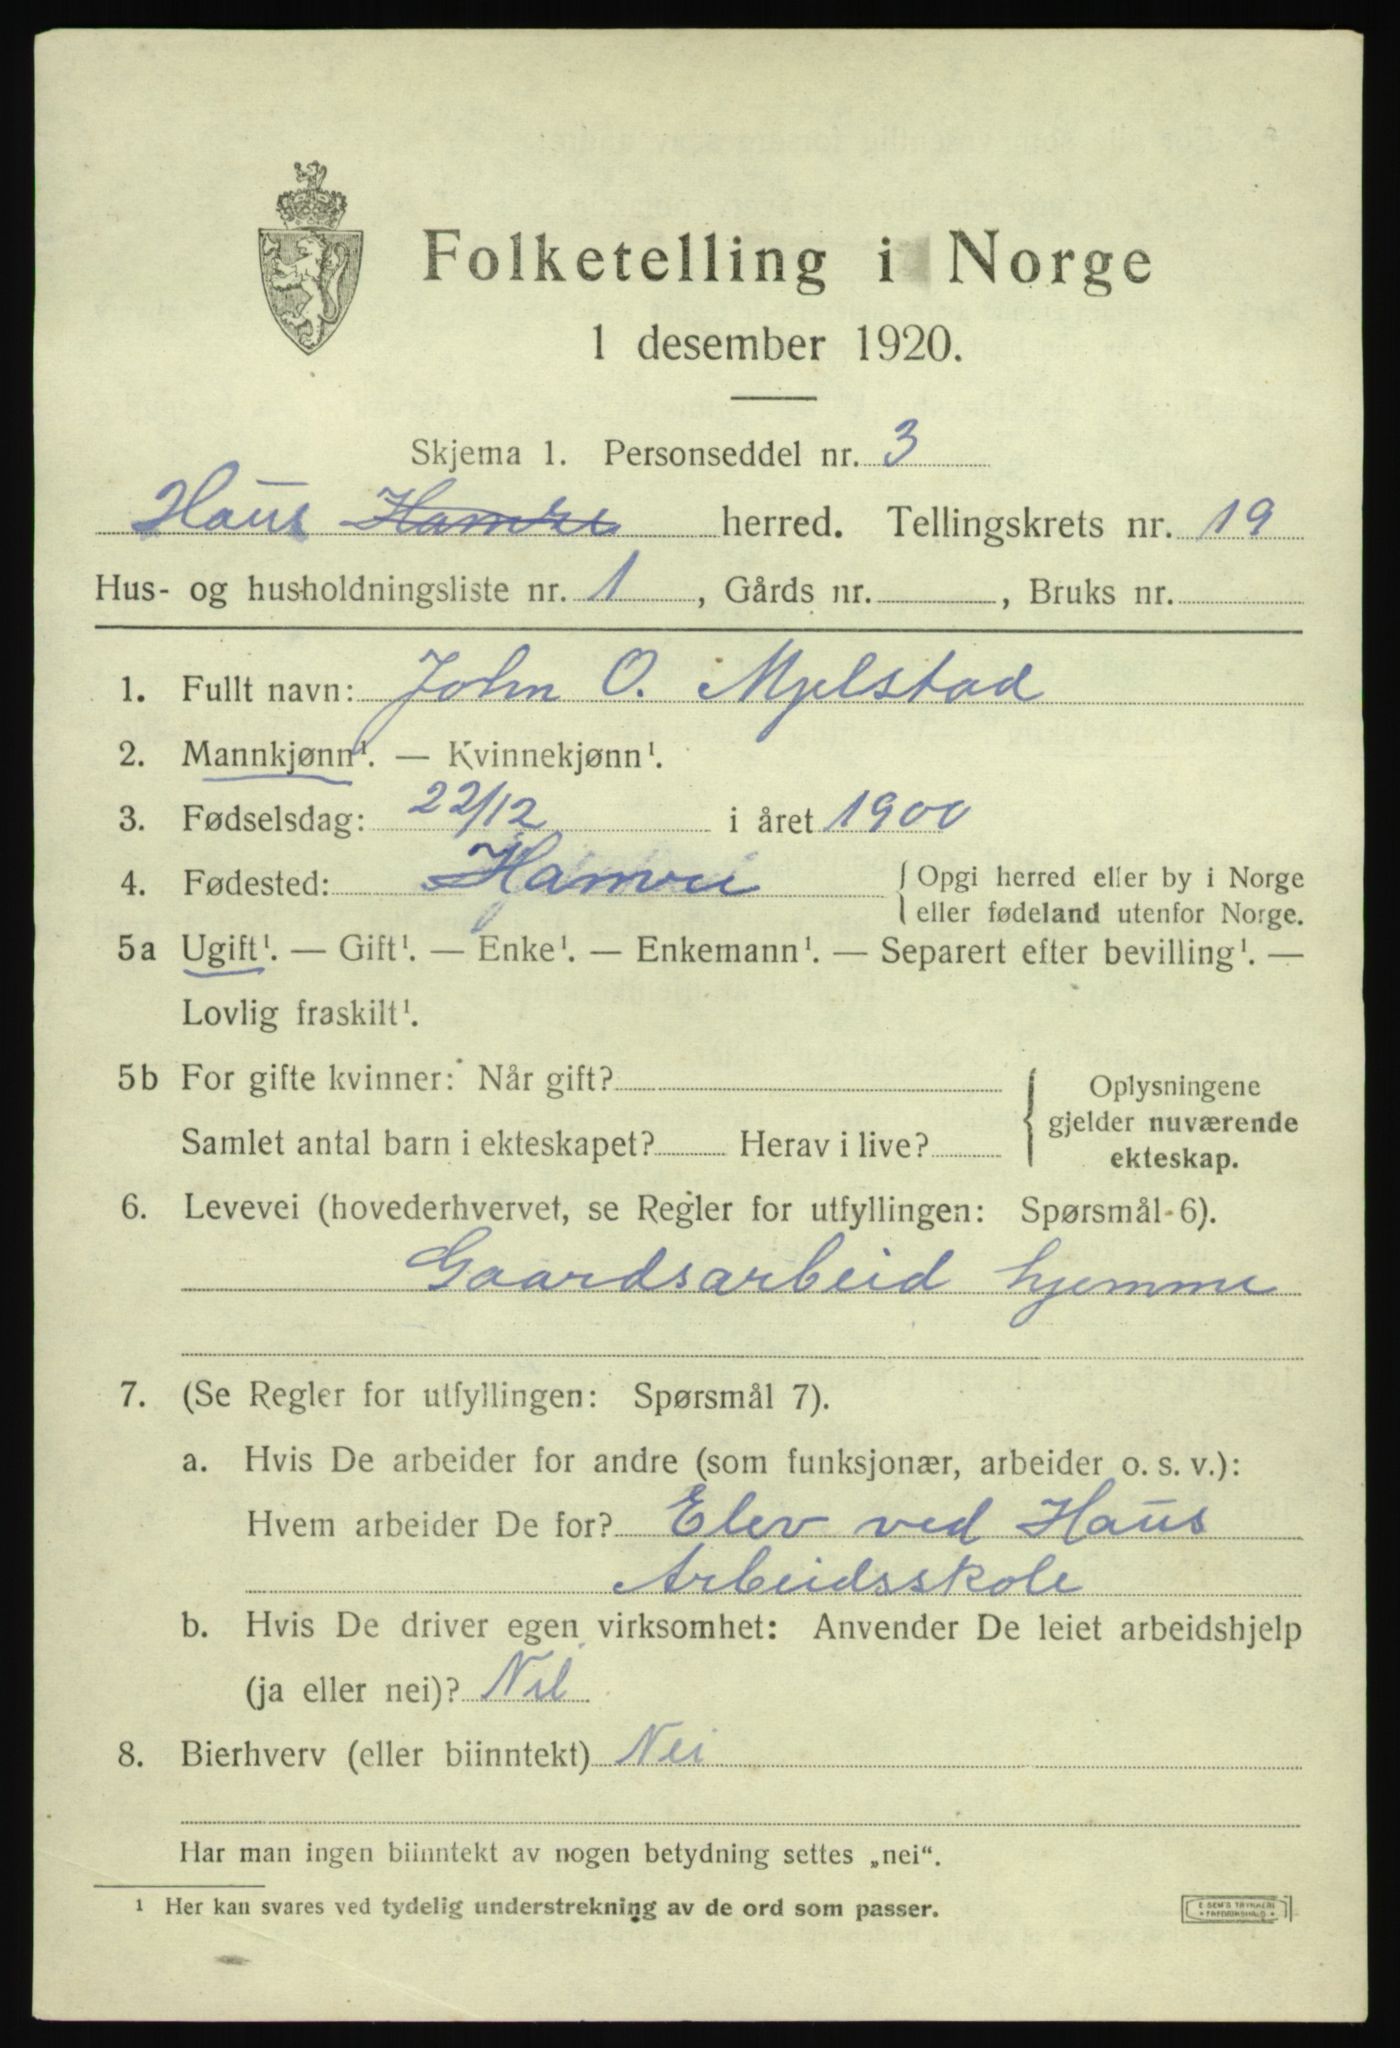 Folketelling i Norge
1 desember 1920.
Skjema 1. Personseddel nr. 3
Haus Hamre herred. Tellingskrets nr. 19
Hus- og husholdningsliste nr. 1, Gårds nr. , Bruks nr.
1. Fullt navn: John O. Mjelstad
2. Mannkjønn¹. — Kvinnekjønn¹.
3. Fødselsdag: 22/12 i året 1900
4. Fødested: Hamre { Opgi herred eller by i Norge
eller fødeland utenfor Norge.
5a Ugift¹. — Gift¹. — Enke¹. — Enkemann¹. — Separert efter bevilling¹. —
Lovlig fraskilt¹.
5b For gifte kvinner: Når gift?
Samlet antal barn i ekteskapet? Herav i live?
{ Oplysningene
gjelder nuværende
ekteskap.
6. Levevei (hovederhvervet, se Regler for utfyllingen: Spørsmål 6).
Gaardsarbeid hjemme
7. (Se Regler for utfyllingen: Spørsmål 7).
a. Hvis De arbeider for andre (som funksjonær, arbeider o. s. v.):
Hvem arbeider De for? Elev ved Haus
Arbeidsskole
b. Hvis De driver egen virksomhet: Anvender De leiet arbeidshjelp
(ja eller nei)? Nil
8. Bierhverv (eller biinntekt) Nei
Har man ingen biinntekt av nogen betydning settes „nei“.
¹ Her kan svares ved tydelig understrekning av de ord som passer.
E SEM'S TRYKKERI
FREDRIKSHALD